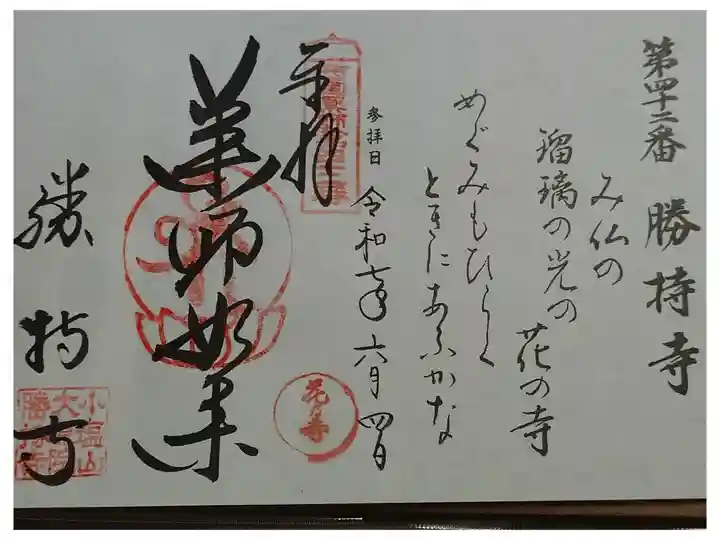 第四十二番 勝持寺
み仏の
瑠璃の光の
花の寺
めぐみもひらく
ときにあふかな
参拝日 令和七年六月四日
奉拝
西国薬師第四十二番
薬師如来
花の寺
勝持寺
小塩山
大原院
勝持寺